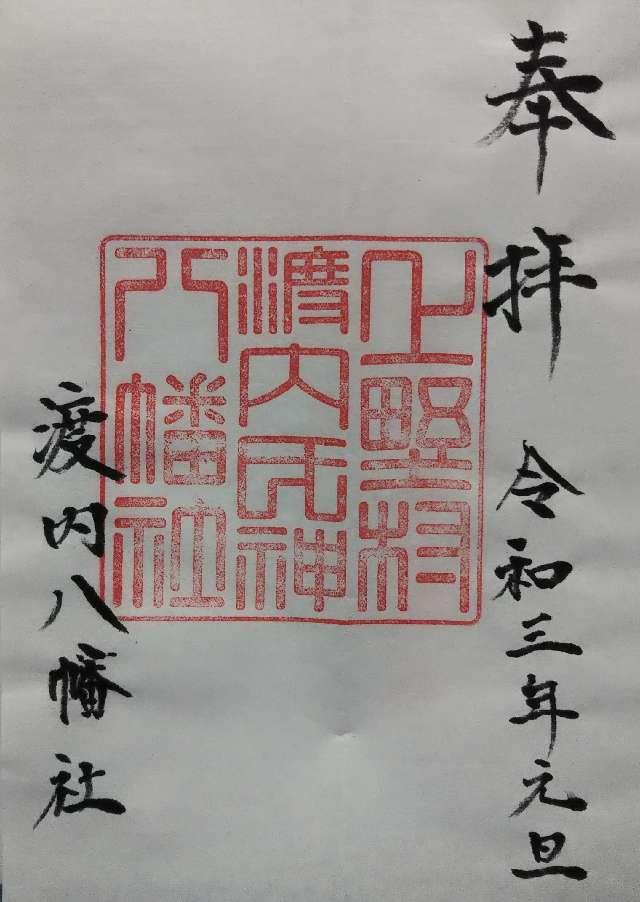 奉拝
令和三年元旦
上野村
渡内氏神
八幡社
渡内八幡社